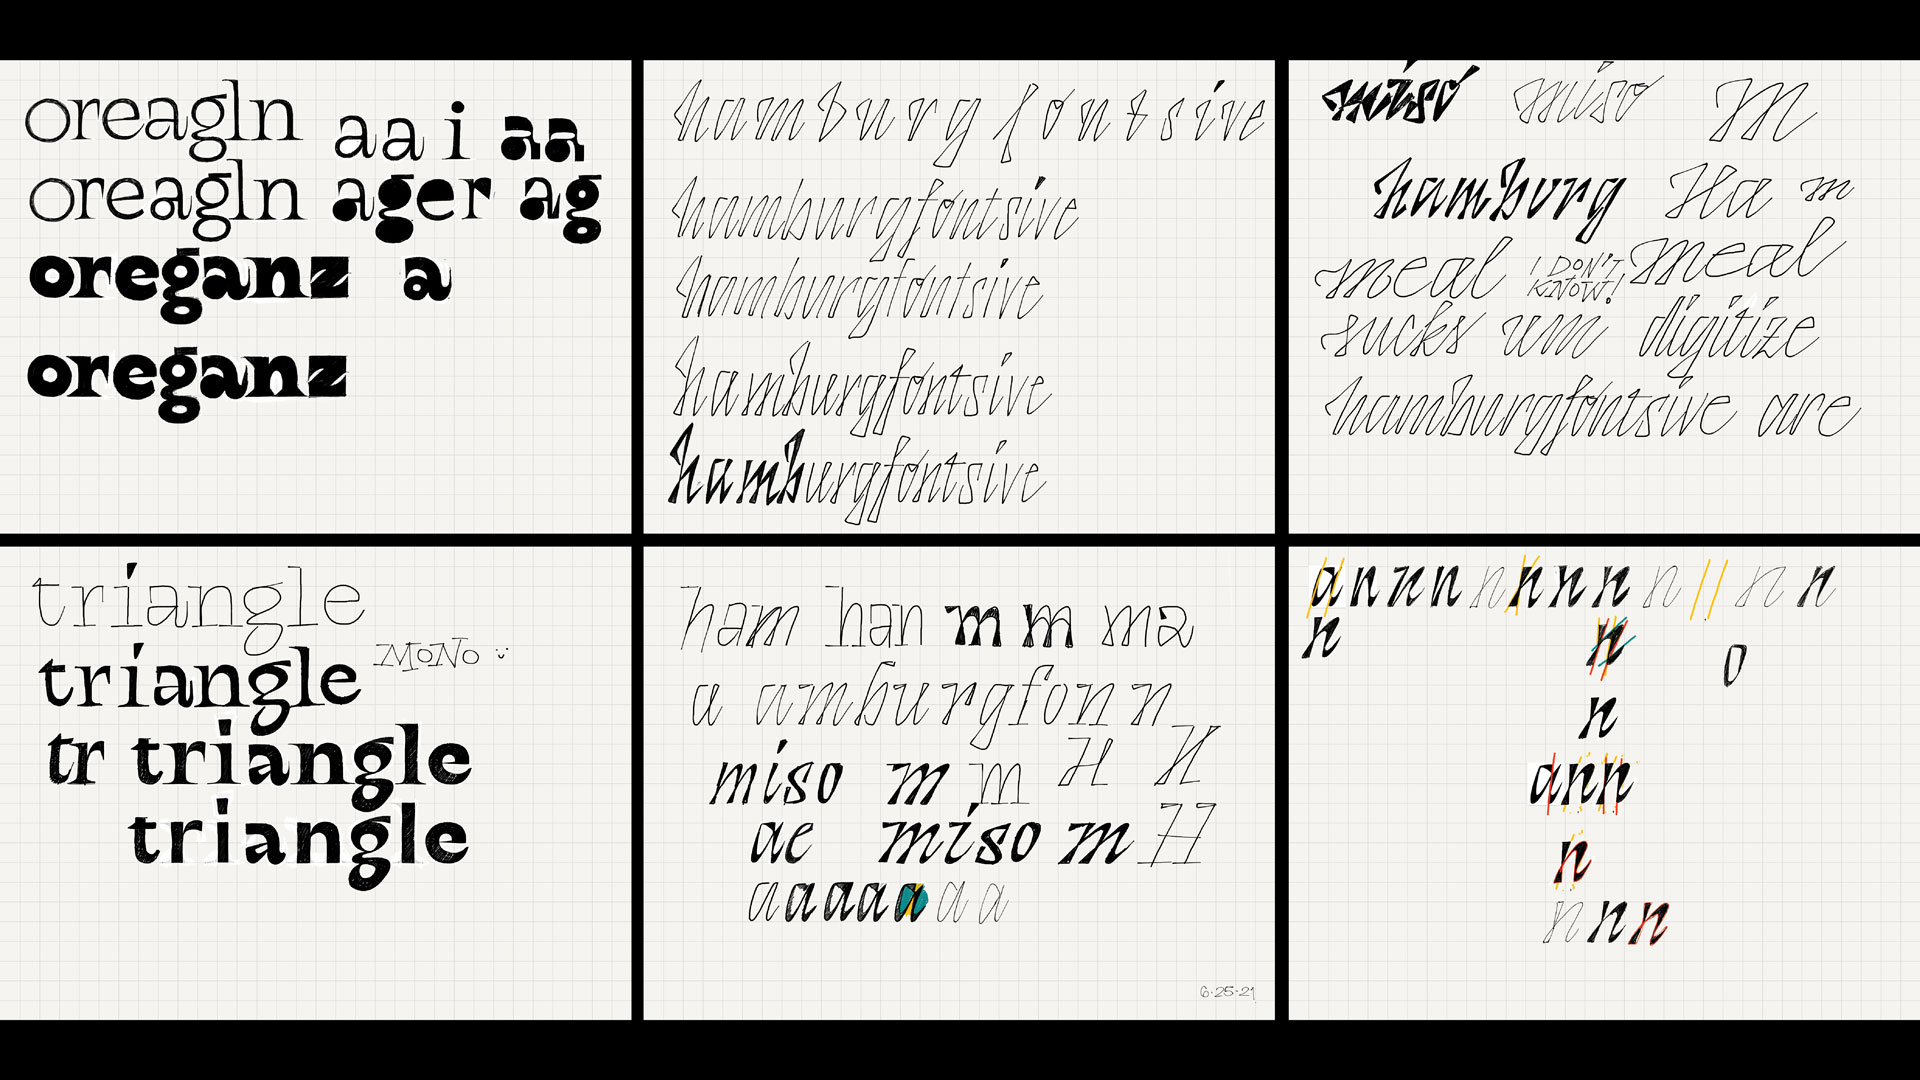 oreagln aa i aa
oreagln ager ag
oreganz a
oreganz
hamburg fontsive
hamburgfontsive
hamburgfontsive
hamburgfontsive
hamburgfontsive
miso miso m
hamburg Ha m
meal I DON'T KNOW! meal
sucks um digitize
hamburgfontsive are
triangle
MONO
triangle
tr triangle
triangle
ham han m m ma
a amburgfonn n
miso m m H H
ae miso m H
aaaaa a a
6·25·21
annn nnnn n n n
n n o
n
ann
n
nnn